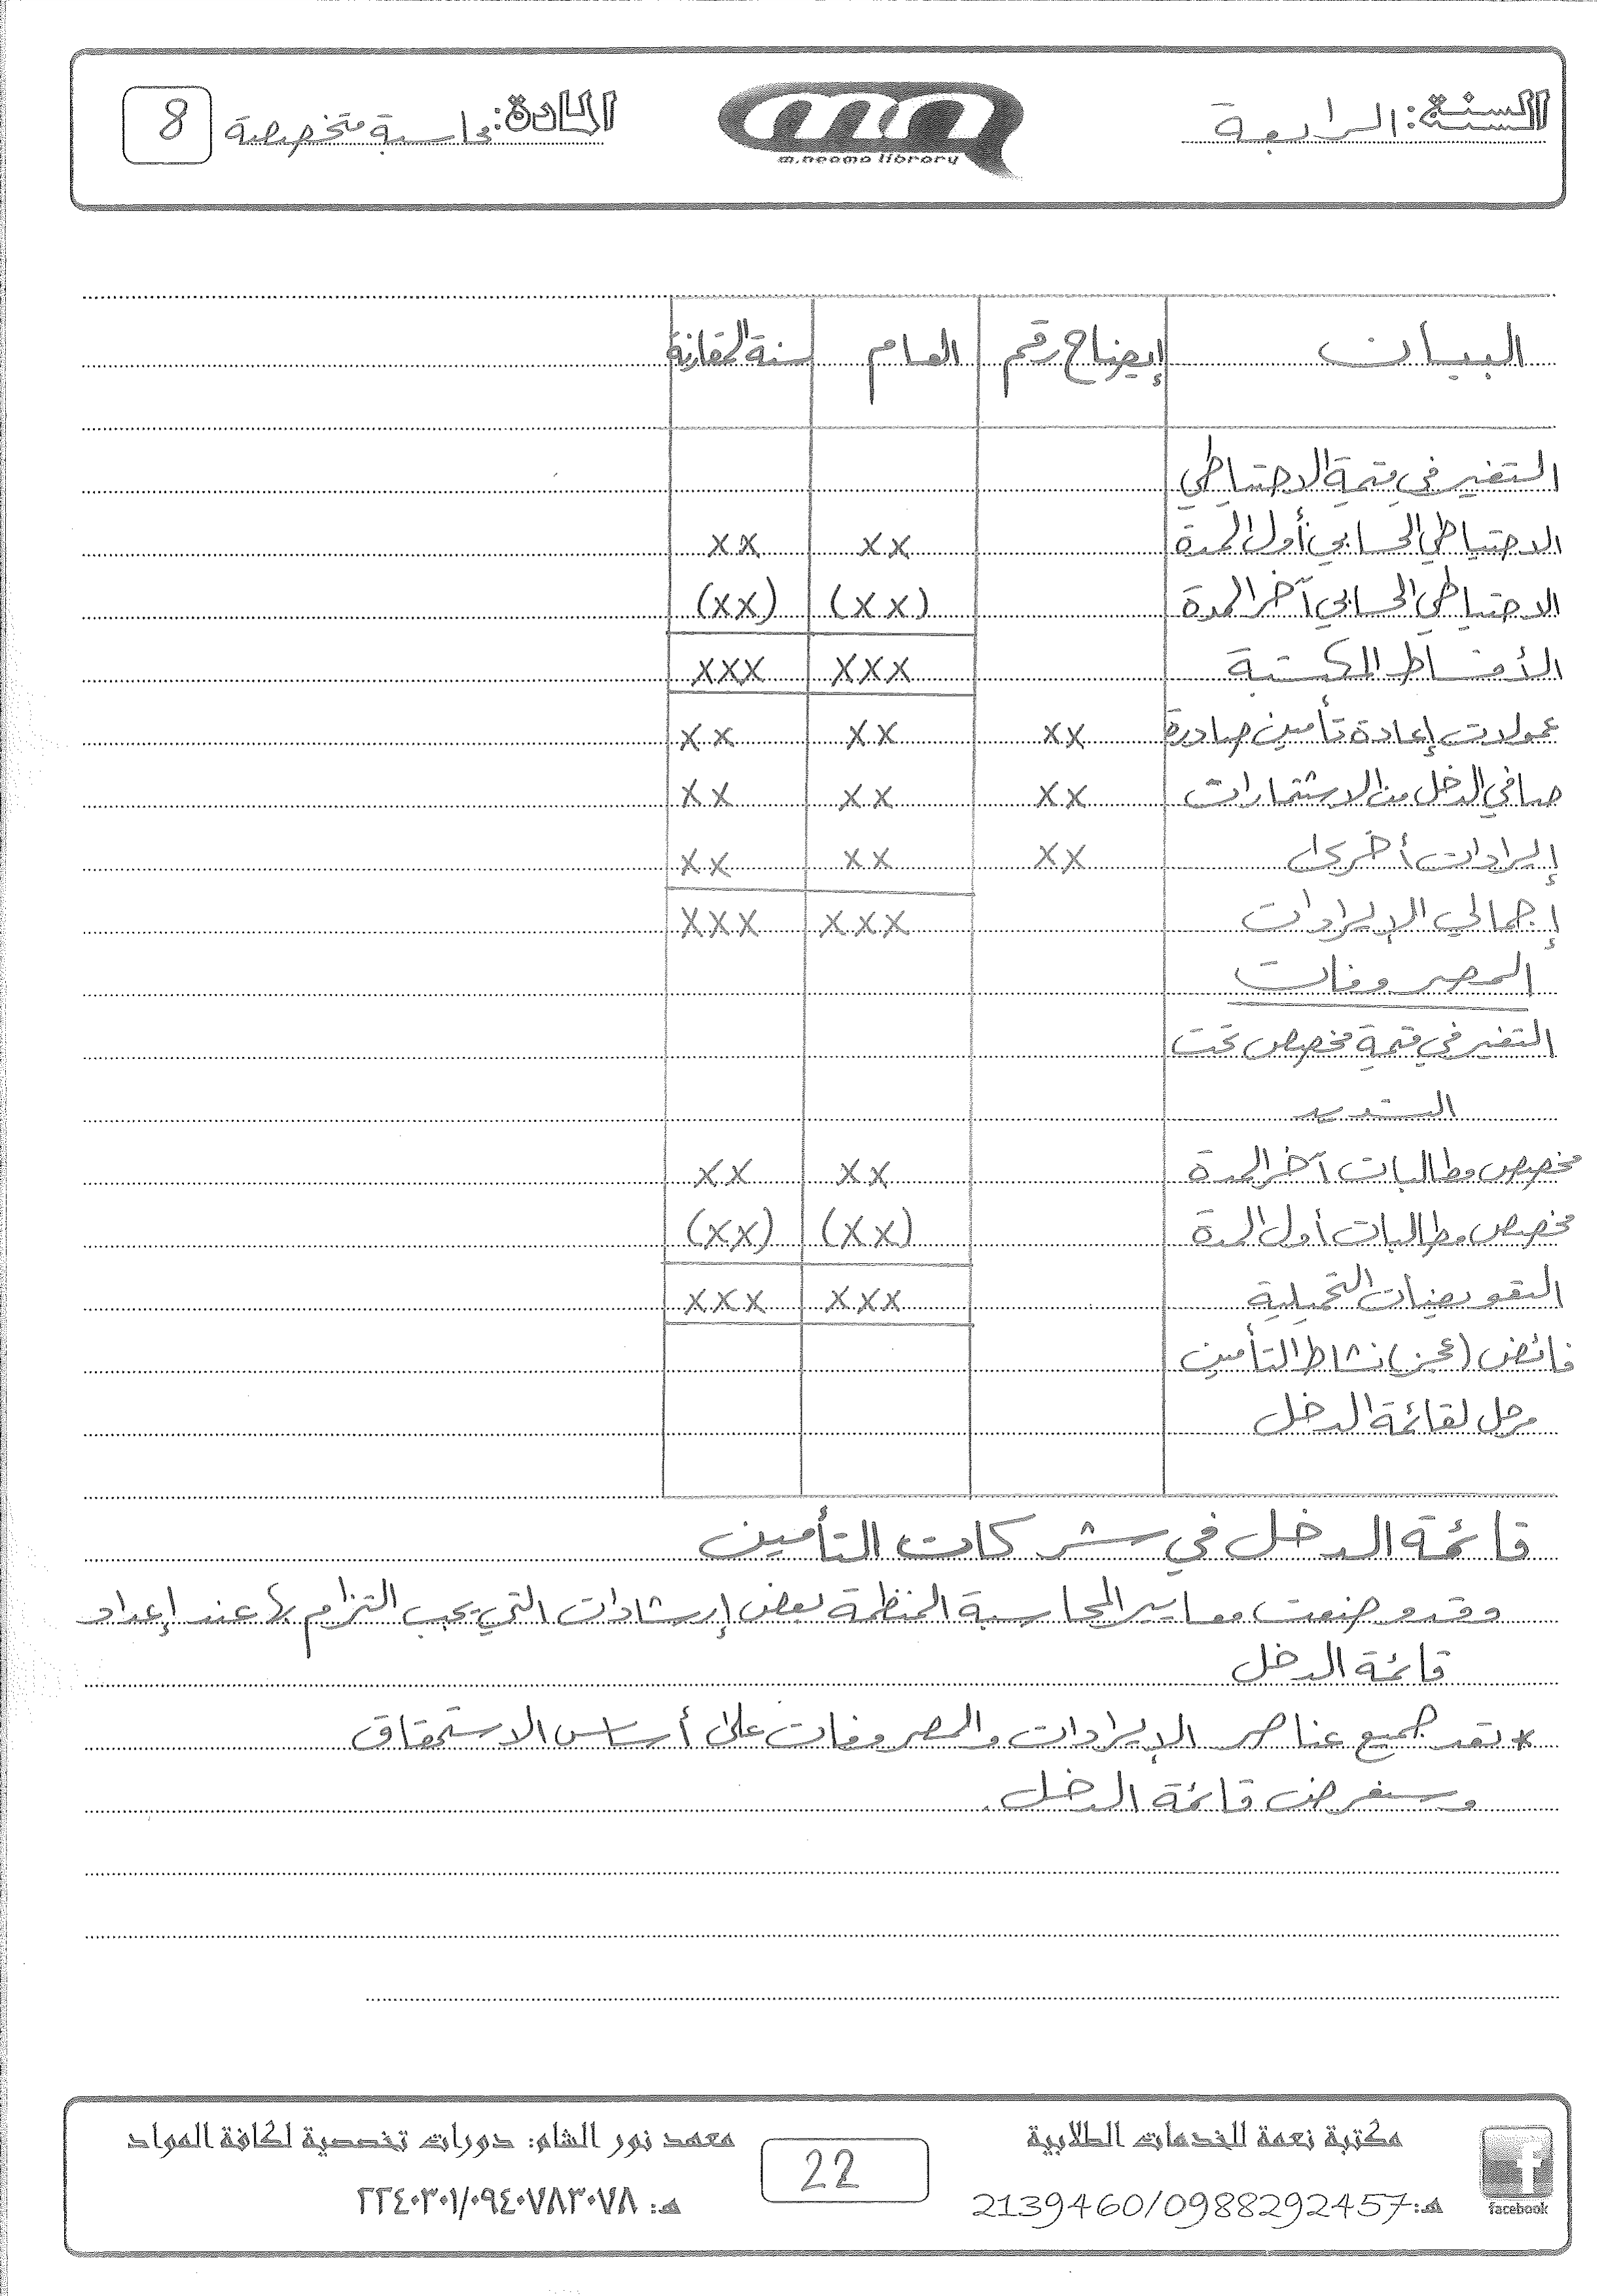 السنة: الرابعة
m.neama library
المادة: محاسبة متخصصة
8
البيان إيضاح رقم العام سنة المقارنة
التغير في قيمة الاحتياطي
الاحتياطي الحسابي أول المدة xx xx
الاحتياطي الحسابي آخر المدة (xx) (xx)
الأقساط المكتسبة xxx xxx
عمولات إعادة تأمين صادرة xx xx xx
صافي الدخل من الاستثمارات xx xx xx
إيرادات أخرى xx xx xx
إجمالي الإيرادات xxx xxx
المصروفات
التغير في قيمة مخصص تحت
التسديد
مخصص مطالبات آخر المدة xx xx
مخصص مطالبات أول المدة (xx) (xx)
التعويضات التحميلية xxx xxx
فائض (عجز) نشاط التأمين
مرحل لقائمة الدخل
قائمة الدخل في شركات التأمين
وقد وضعت معايير المحاسبة المنظمة بعض إرشادات التي يجب التزام بها عند إعداد
قائمة الدخل
* تعد جميع عناصر الإيرادات والمصروفات على أساس الاستحقاق
وسنعرض قائمة الدخل.
مكتبة نعمة للخدمات الطلابية
هـ: 2139460/0988292457
facebook
22
معهد نور الشام: دورات تخصصية لكافة المواد
هـ: ٢٢٤٠٣٠١/٠٩٤٠٧٨٣٠٧٨